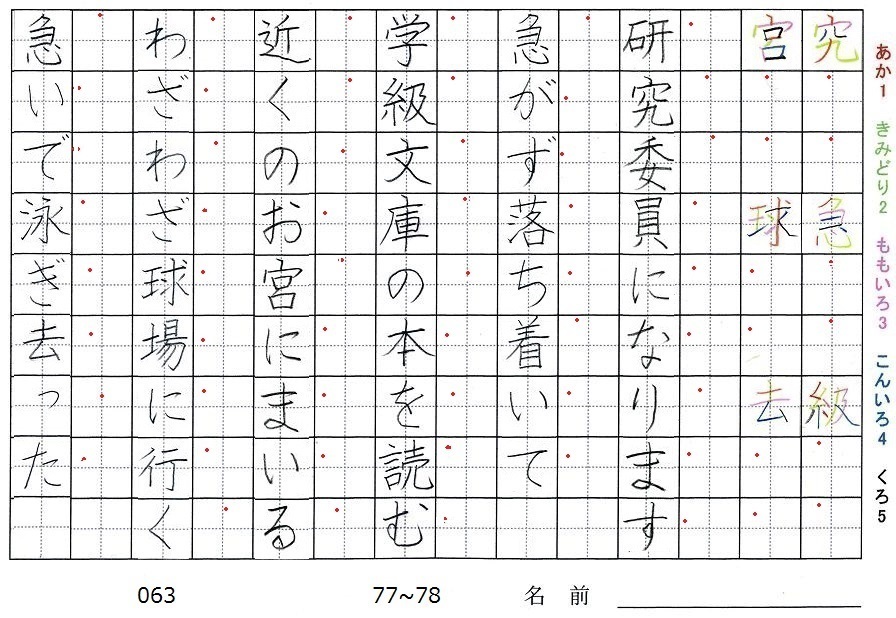 あか1 きみどり2 ももいろ3 こんいろ4 くろ5
究 急 級
宮 球 去
研究委員になります
急がず落ち着いて
学級文庫の本を読む
近くのお宮にまいる
わざわざ球場に行く
急いで泳ぎ去った
063 77~78 名前